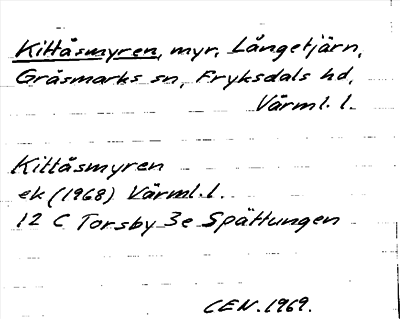 Kittåsmyren, myr, Långetjärn,
Gräsmarks sn, Fryksdals hd,
Värml. l.
Kittåsmyren
ek (1968) Värml. l.
12 C Torsby 3e Spättungen
CEN. 1969.